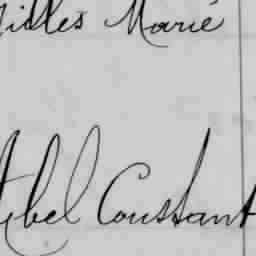 Gilles Marié
Abel Coustant